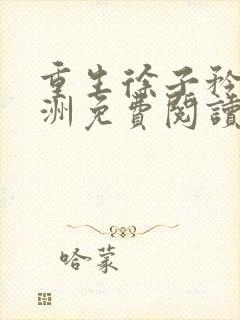 重生徐子矜
洲免費閱讀
哈蒙